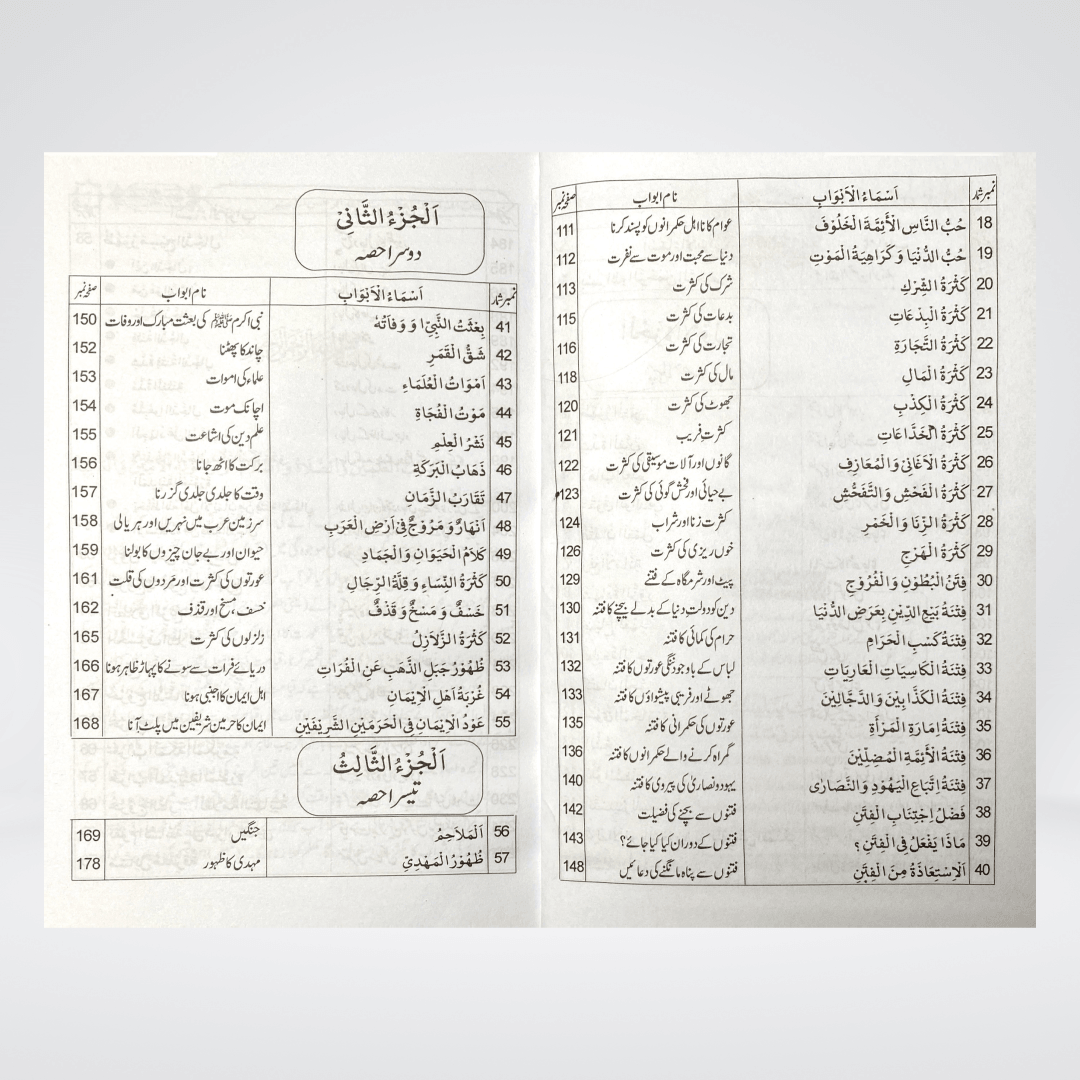 نمبر شمار اَسْمَاءُ الْاَبْوَابِ نام ابواب صفحہ نمبر
18 حُبُّ النَّاسِ الْاَئِمَّةَ الْخَلُوْفَ عوام کا نااہل حکمرانوں کو پسند کرنا 111
19 حُبُّ الدُّنْيَا وَكَرَاهِيَةُ الْمَوْتِ دنیا سے محبت اور موت سے نفرت 112
20 كَثْرَةُ الشِّرْكِ شرک کی کثرت 113
21 كَثْرَةُ الْبِدْعَاتِ بدعات کی کثرت 115
22 كَثْرَةُ التِّجَارَةِ تجارت کی کثرت 116
23 كَثْرَةُ الْمَالِ مال کی کثرت 118
24 كَثْرَةُ الْكِذْبِ جھوٹ کی کثرت 120
25 كَثْرَةُ الْخَدَّاعَاتِ کثرتِ فریب 121
26 كَثْرَةُ الْاَغَانِيْ وَالْمُعَازِفِ گانوں اور آلات موسیقی کی کثرت 122
27 كَثْرَةُ الْفَحْشِ وَالتَّفَحُّشِ بے حیائی اور فحش گوئی کی کثرت 123
28 كَثْرَةُ الزِّنَا وَالْخَمْرِ کثرت زنا اور شراب 124
29 كَثْرَةُ الْهَرْجِ خوں ریزی کی کثرت 126
30 فِتَنُ الْبُطُوْنِ وَالْفُرُوْجِ پیٹ اور شرمگاہ کے فتنے 129
31 فِتْنَةُ بَيْعِ الدِّيْنِ بِعَرَضِ الدُّنْيَا دین کو دولتِ دنیا کے بدلے بیچنے کا فتنہ 130
32 فِتْنَةُ كَسْبِ الْحَرَامِ حرام کی کمائی کا فتنہ 131
33 فِتْنَةُ الْكَاسِيَاتِ الْعَارِيَاتِ لباس کے باوجود ننگی عورتوں کا فتنہ 132
34 فِتْنَةُ الْكَذَّابِيْنَ وَالدَّجَّالِيْنَ جھوٹے اور فریبی پیشواؤں کا فتنہ 133
35 فِتْنَةُ اِمَارَةِ الْمَرْأَةِ عورتوں کی حکمرانی کا فتنہ 135
36 فِتْنَةُ الْأَئِمَّةِ الْمُضِلِّيْنَ گمراہ کرنے والے حکمرانوں کا فتنہ 136
37 فِتْنَةُ اِتِّبَاعِ الْيَهُوْدِ وَالنَّصَارٰى یہود و نصاریٰ کی پیروی کا فتنہ 140
38 فَضْلُ اِجْتِنَابِ الْفِتَنِ فتنوں سے بچنے کی فضیلت 142
39 مَاذَا يَفْعَلُ فِى الْفِتَنِ ؟ فتنوں کے دوران کیا کیا جائے؟ 143
40 اَلْاِسْتِعَاذَةُ مِنَ الْفِتَنِ فتنوں سے پناہ مانگنے کی دعائیں 148
اَلْجُزْءُ الثَّانِیْ
دوسرا حصہ
نمبر شمار اَسْمَاءُ الْاَبْوَابِ نام ابواب صفحہ نمبر
41 بِعْثَتُ النَّبِيِّ ا وَ وَفَاتُهُ نبی اکرم ﷺ کی بعثت مبارک اور وفات 150
42 شَقُّ الْقَمَرِ چاند کا پھٹنا 152
43 اَمْوَاتُ الْعُلَمَاءِ علماء کی اموات 153
44 مَوْتُ الْفُجَاةِ اچانک موت 154
45 نَشْرُ الْعِلْمِ علم دین کی اشاعت 155
46 ذَهَابُ الْبَرَكَةِ برکت کا اٹھ جانا 156
47 تَقَارُبُ الزَّمَانِ وقت کا جلدی جلدی گزرنا 157
48 اَنْهَارٌ وَ مَرُوْجٌ فِىْ اَرْضِ الْعَرَبِ سرزمین عرب میں نہریں اور ہریالی 158
49 كَلَامُ الْحَيَوَانِ وَالْجَمَادِ حیوان اور بے جان چیزوں کا بولنا 159
50 كَثْرَةُ النِّسَاءِ وَ قِلَّةُ الرِّجَالِ عورتوں کی کثرت اور مردوں کی قلت 161
51 خَسْفٌ وَ مَسْخٌ وَ قَذْفٌ خسف، مسخ اور قذف 162
52 كَثْرَةُ الزَّلَازِلُ زلزلوں کی کثرت 165
53 ظُهُوْرُ جَبَلِ الذَّهَبِ عَنِ الْفُرَاتِ دریائے فرات سے سونے کا پہاڑ ظاہر ہونا 166
54 غُرْبَةُ اَهْلِ الْاِيْمَانِ اہل ایمان کا اجنبی ہونا 167
55 عَوْدُ الْاِيْمَانِ فِى الْحَرَمَيْنِ الشَّرِيْفَيْنِ ایمان کا حرمین شریفین میں پلٹ آنا 168
اَلْجُزْءُ الثَّالِثُ
تیسرا حصہ
56 اَلْمَلَاحِمُ جنگیں 169
57 ظُهُوْرُ الْمَهْدِيِّ مہدی کا ظہور 178